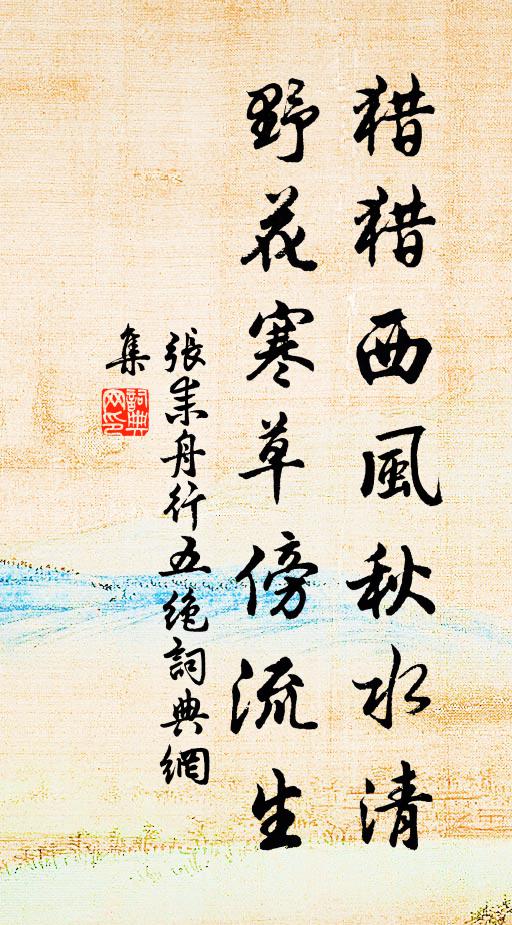 猎猎西風秋水清
野花寒草傍流生
張耒舟行五绝詞典網
集
詞典
网印